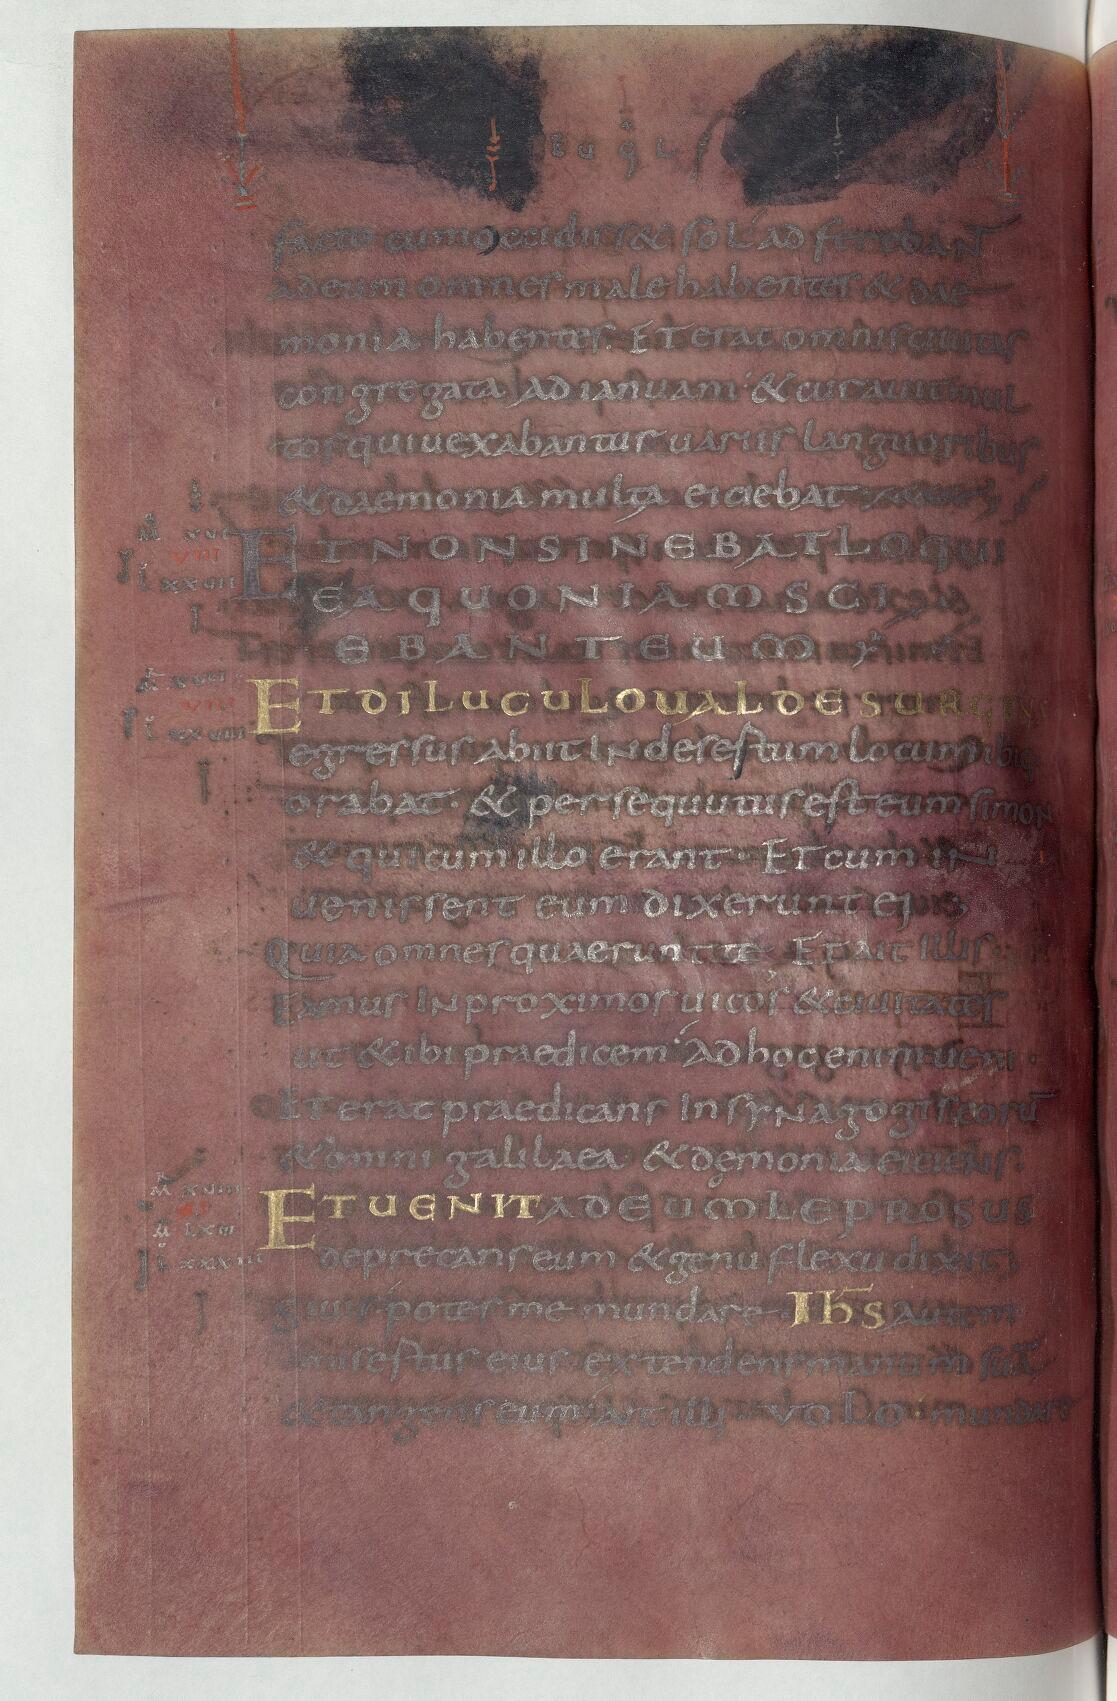 EUGLS
facto cum occidiss& sol adferebaN
adeum omnes male habentes & dae
monia habentes. ET erat omnis ciuitas
congregata ad ianuam · & curauit mul
tos qui uexabantur uariis languoribus
& daemonia multa eiciebat
ET NON SINEBAT LOQUI
EA QUONIAM SCI
EBANT EUM
ET DILUCULO UALDE SURGENS
egressus abiit IN desertum locum ibiq;
orabat · & persequutus est eum simoN
& qui cum illo erant · ET cum IN
uenissent eum dixerunt ei
Quia omnes quaerunt te ET ait illis
Eamus IN proximos uicos & ciuitates
ut & ibi praedicem · Ad hoc enim ueni ·
ET erat praedicans In syNagogis eorū
& omni galilaea & dęmonia eiciens.
ET UENIT AD EUM LEPROSUS
deprecans eum & genu flexu dixit
Si uis potes me mundare · Ihs autem
misertus eius extendens manum suā
& tangens eum ait illi · Volo mundare